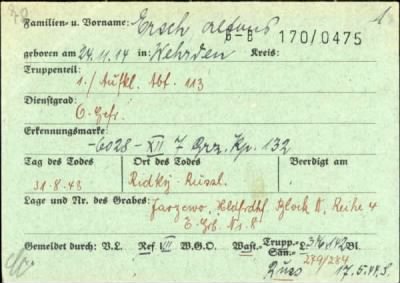 Familien- u. Vorname: Ersch, Alfons
geboren am 24.11.14 in: Kehrden Kreis: 170/0475
Truppenteil:
1./Aufkl. Abt. 113
Dienstgrad:
O. Gefr.
Erkennungsmarke:
-6028- XII 7 Grz. Kp. 132
Tag des Todes Ort des Todes Beerdigt am
31.8.43 Ridkij Russl.
Lage und Nr. des Grabes: Jarzewo, Hldfrdhf. Block II, Reihe 4
E. Grb. Nr. 8
Gemeldet durch: V.L. Ref VII W.G.O. Wast.- Trupp.- San.- L. 316/142 Bl.
279/284
17.5.44